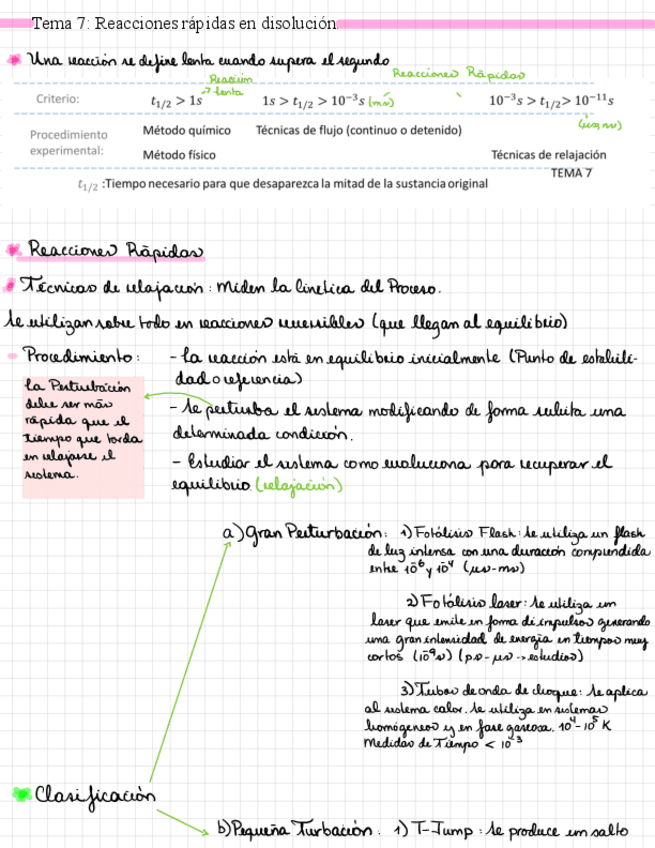 Tema 7: Reacciones rápidas en disolución.
Una reacción se define lenta cuando supera el segundo
Reacción
→ lenta
Reacciones Rápidas
Criterio: t1/2 > 1s 1s > t1/2 > 10⁻³s (ms) 10⁻³s > t1/2 > 10⁻¹¹s
Procedimiento experimental: Método químico Técnicas de flujo (continuo o detenido)
Método físico Técnicas de relajación
TEMA 7
t1/2 :Tiempo necesario para que desaparezca la mitad de la sustancia original
Reacciones Rápidas
Técnicas de relajación: Miden la Cinética del Proceso.
Se utilizan sobre todo en reacciones reversibles (que llegan al equilibrio)
Procedimiento:
- La reacción está en equilibrio inicialmente (Punto de estabili-
dad o referencia)
- Se perturba el sistema modificando de forma subita una
determinada condición.
- Estudiar el sistema como evoluciona para recuperar el
equilibrio. (relajación)
La Perturbación
debe ser más
rápida que el
tiempo que tarda
en relajarse el
sistema.
a) Gran Perturbación: 1) Fotólisis Flash: Se utiliza un flash
de luz intensa con una duración comprendida
entre 10⁻⁶ y 10⁻⁴ (μs-ms)
2) Fotólisis laser: Se utiliza un
laser que emite en forma di impulsos generando
una gran intensidad de energía en tiempos muy
cortos (10⁻⁹s) (ps-μs → estudios)
3) Tubos de onda de choque: Se aplica
al sistema calor. Se utiliza en sistemas
homógeneos y en fase gaseosa. 10⁴-10⁵ K
Medidas de Tiempo < 10⁻³
Clasificación
b) Pequeña Turbación. 1) T-Jump: Se produce un salto